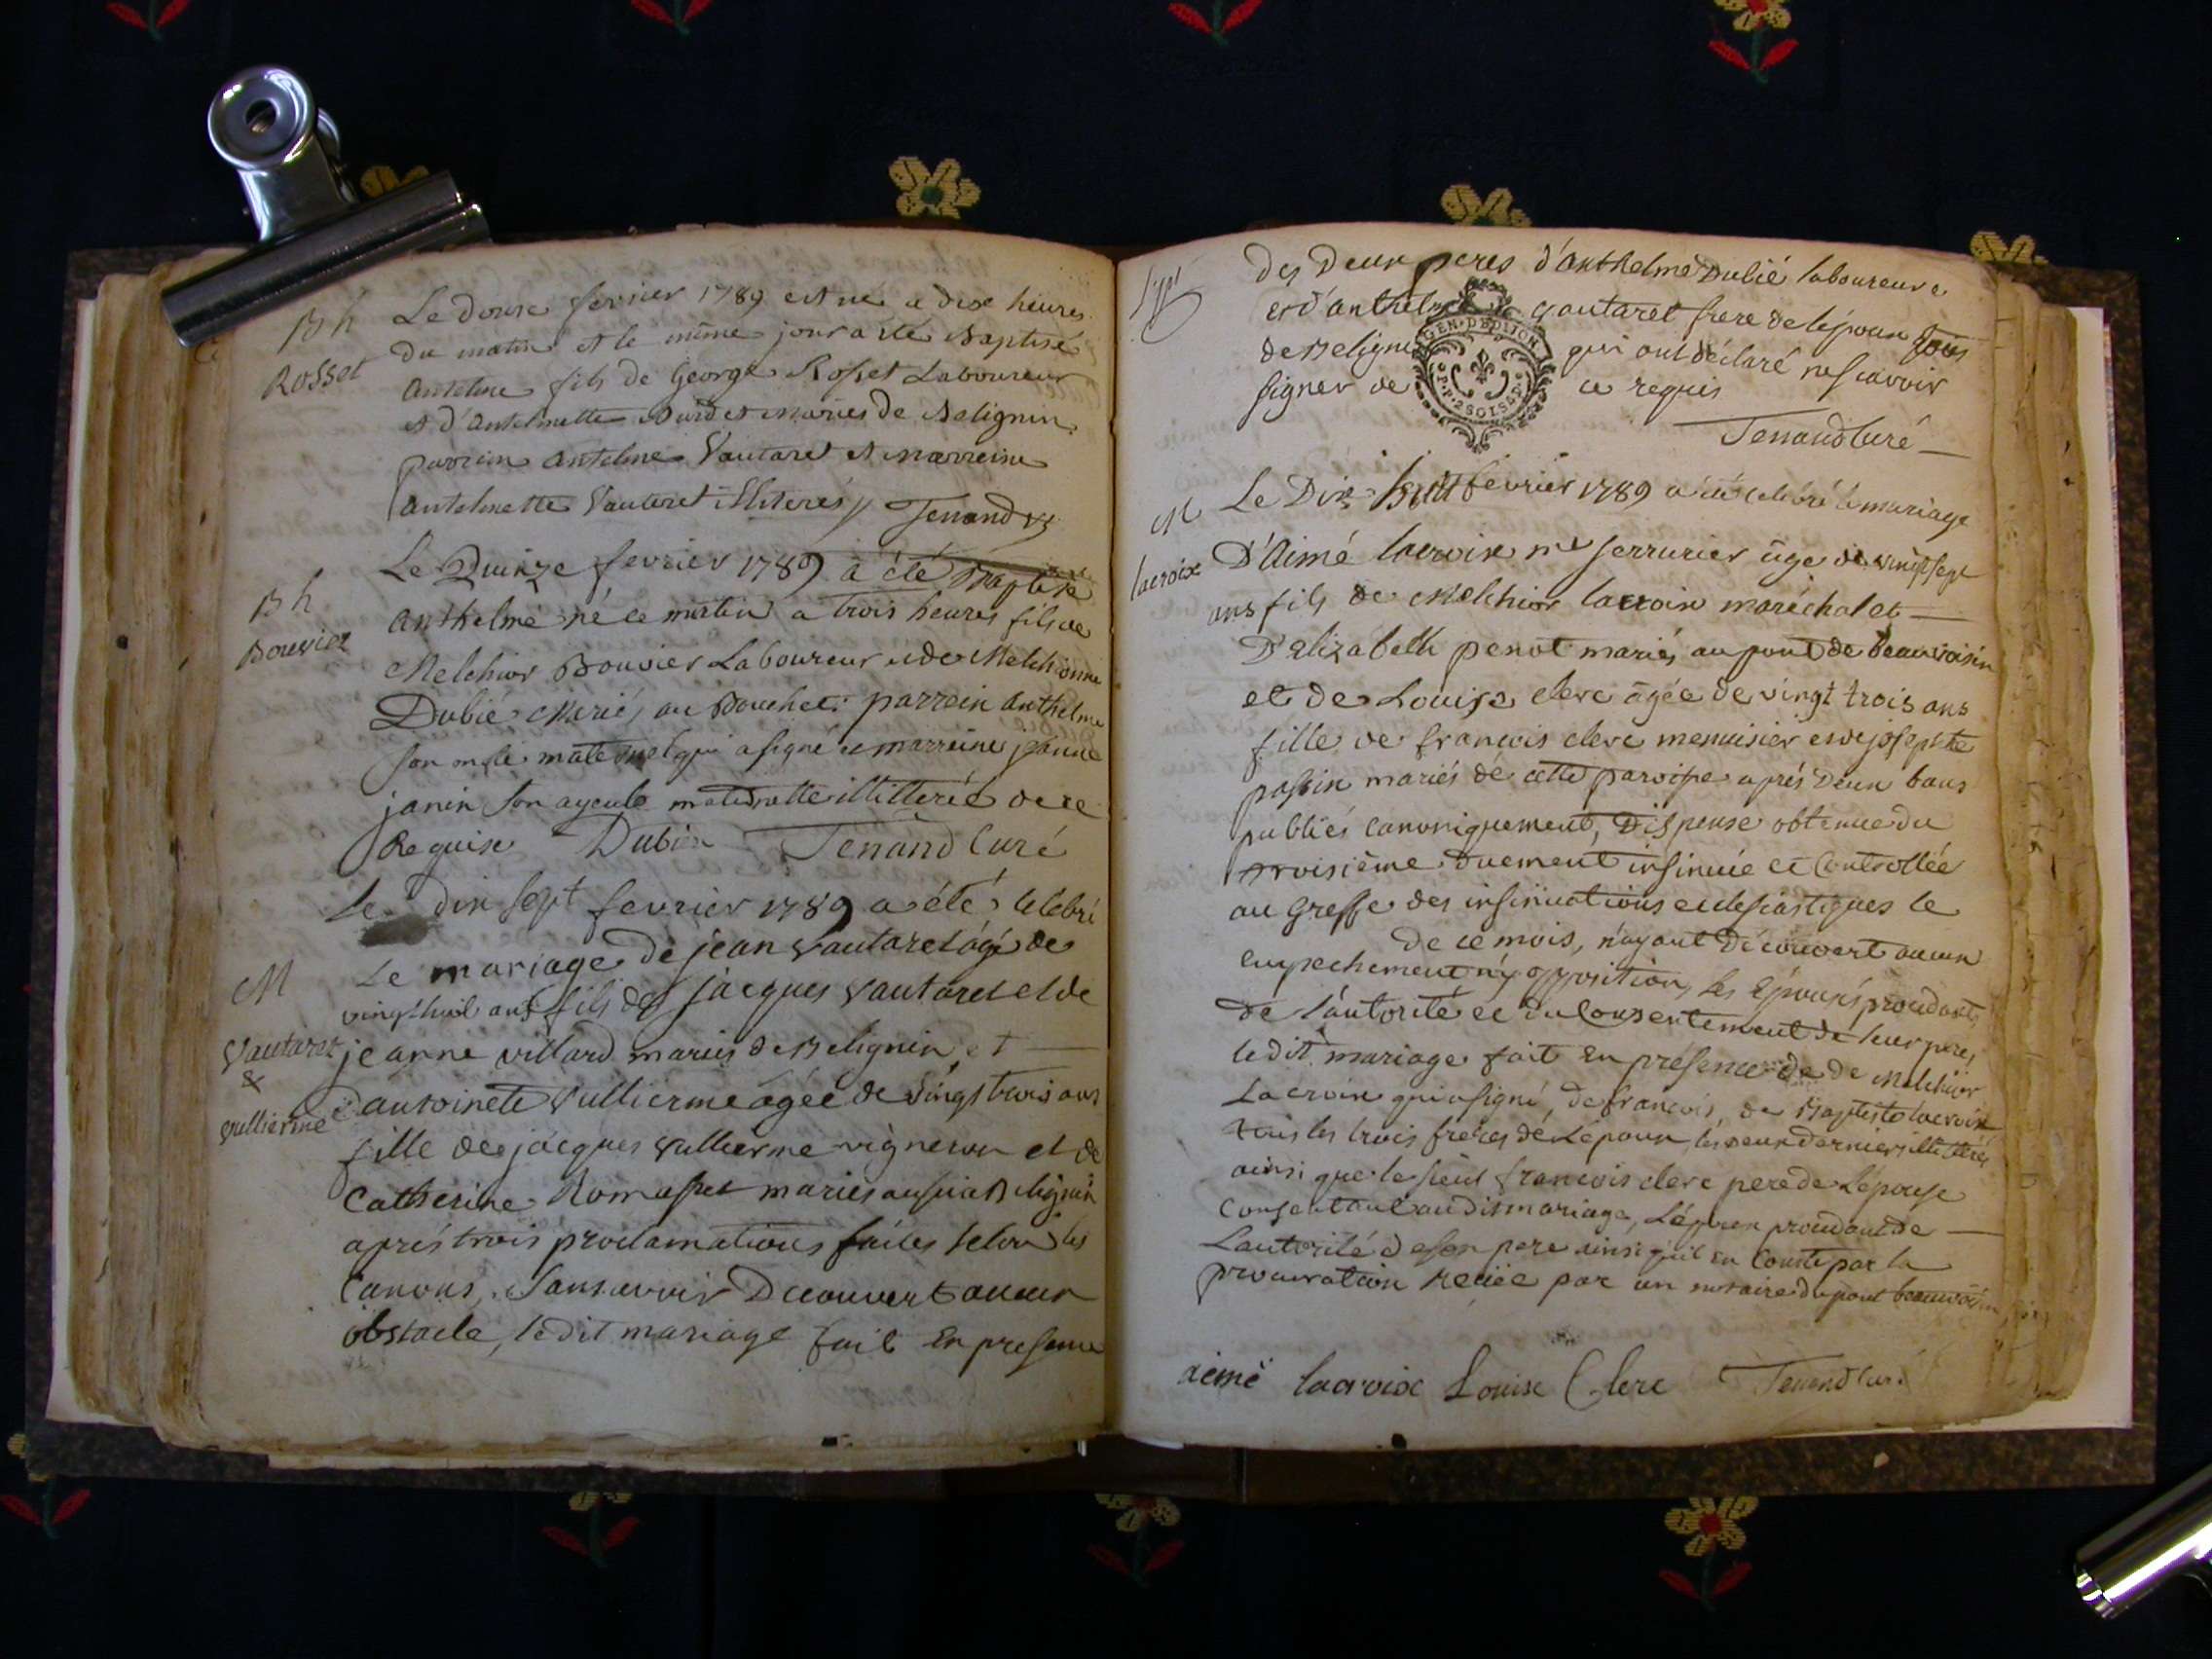 B h
Rosset
Le douze fevrier 1789 est né a dix heures
du matin et le même jour a été Baptisé
Antelme fils de George Rosset Laboureur
et d'Antelmette mariés de Belignin
parrein Antelme Vautaret et marreine
Antelmette Vautaret illiterés Tenand
B h
Bouvier
Le Quinze fevrier 1789 a été Baptisé
Anthelme né ce matin a trois heures fils de
Melchior Bouvier Laboureur et de Melchionne
Dubié mariés au Bouchet: parrein Anthelme
son oncle maternel qui a signé et marreine jeanne
janin son ayeule maternelle illitterée de ce
Requise Dubié Tenand Curé
M
Vautaret
&
vullierme
Le dix sept fevrier 1789 a été célébré
Le mariage de jean Vautaret âgé de
vingt huit ans fils de jacques Vautaret et de
jeanne villard mariés de Belignin et
d'antoinete Vullierme âgée de vingt trois ans
fille de jacques Vullierme vigneron et de
Catherine Romasset mariés aussi a Belignin
aprés trois proclamations faites selon les
Canons, sans avoir Decouvert aucun
obstacle, ledit mariage fait En presence
des Deux peres d'anthelme Dubié laboureur
et d'anthelme Vautaret frere de l'époux tous
de Belignin qui ont déclaré ne scavoir
signer de ce requis
GEN. D. DIJON
Tenand Curé
M
lacroix
Le Dix huit fevrier 1789 a été celebré le mariage
D'Aimé lacroix me serrurier âgé de vingt sept
ans fils de Melchior lacroix maréchal et
D'elizabeth penot mariés au pont de beauvoisin
et de Louise clerc âgée de vingt trois ans
fille de francois clerc menuisier et de josephte
passin mariés de cette paroisse aprés Deux bans
publiés canoniquement, Dispense obtenue du
troisième duement insinuée et Controllée
au Greffe des insinuations ecclesiastiques le
de ce mois, n'ayant Découvert aucun
empechement ny opposition, les Epouxs procedants
de l'autorité et du Consentement de leur peres
ledit mariage fait En présence de de Melchior
Lacroix qui a signé, de francois, de Baptiste lacroix
tous les trois freres de L'époux, les deux derniers illitterés
ainsi que le sieur francois clerc pere de L'épouse
Consentant audit mariage, L'époux procedant de
L'autorité de son pere ainsi qu'il en Conste par la
procuration Reçüe par un notaire du pont beauvoisin
aimé lacroix Louise Clerc Tenand Curé